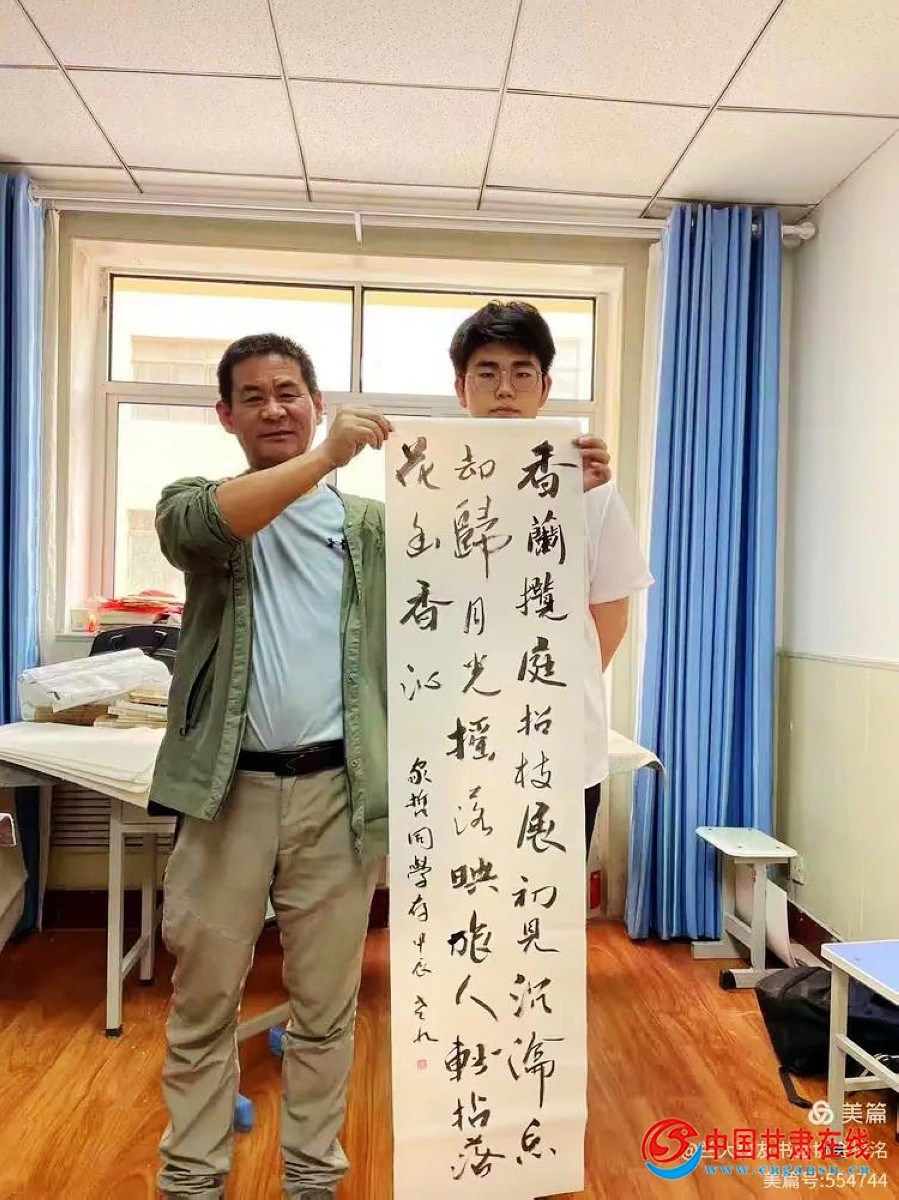 香蘭攬庭招枝展初見沉淪忘
却歸月光摇落映旅人輕拈落
花幽香沁
哲同學存 甲辰
美篇
中国甘肃在线
www.cngansu.cn
美篇号:554744